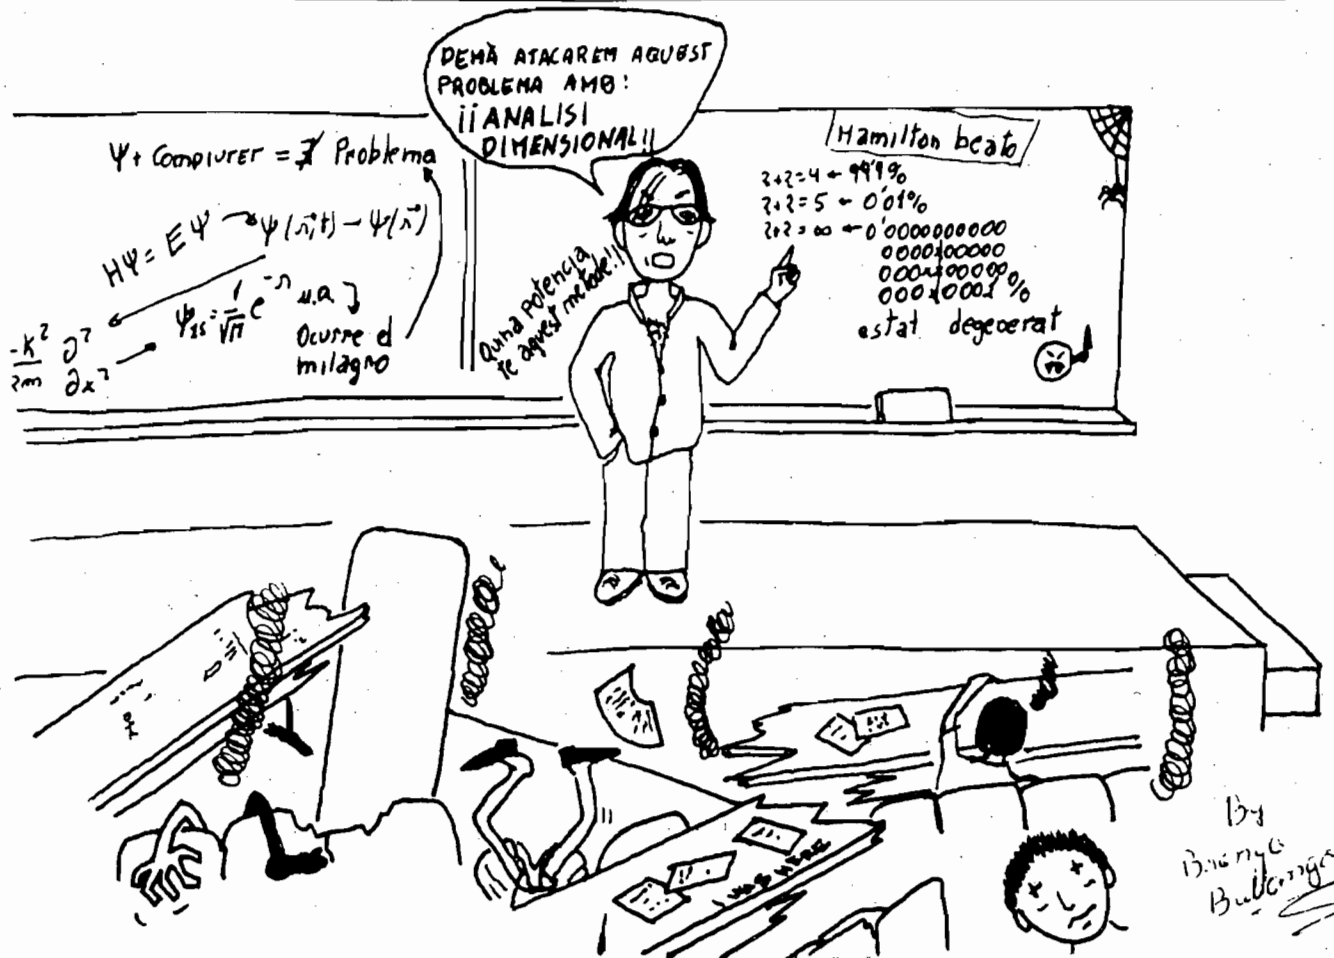 DEMÀ ATACAREM AQUEST
PROBLEMA AMB:
¡¡ANALISI
DIMENSIONAL!!
Ψ + Computer = ∄ Problema
HΨ = EΨ → Ψ(r⃗,t) → Ψ(r⃗)
-ħ²/2m ∂²/∂x²
Ψ₁ₛ = 1/√π e⁻ʳ u.a
Ocurre el
milagro
Quina potencia
te aquest metode!!
Hamilton beato
2+2=4 ← 99'9%
2+2=5 ← 0'01%
2+2=∞ ← 0'0000000000
estat degenerat
I WAS HERE
By